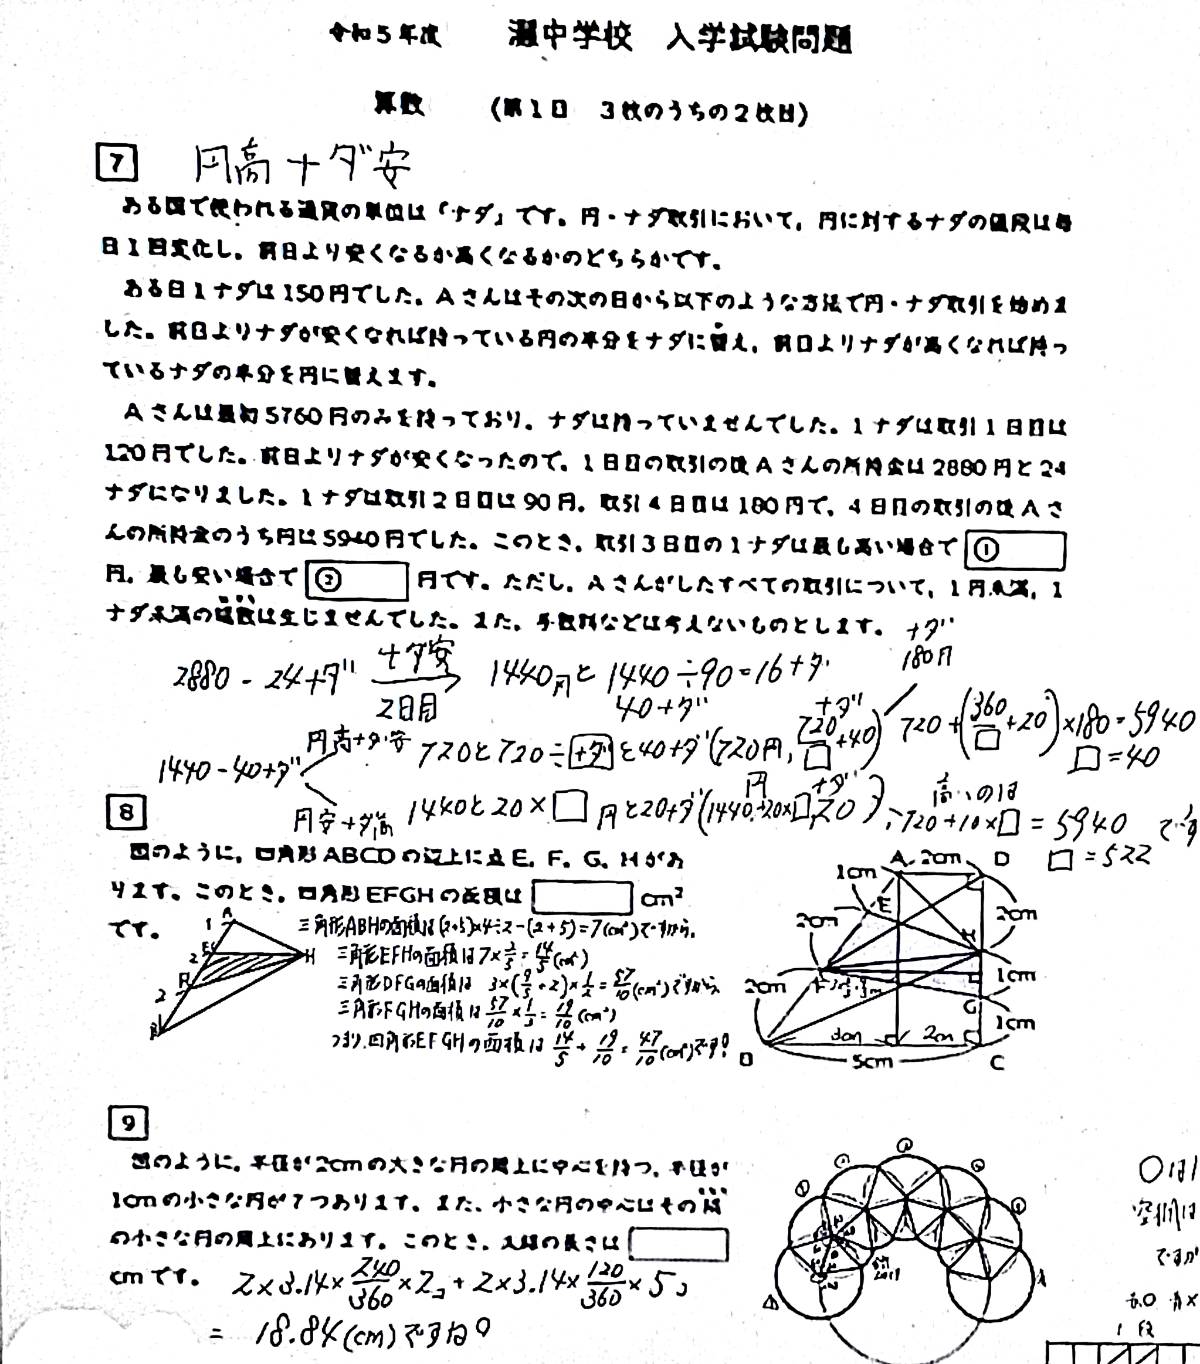 令和5年度 灘中学校 入学試験問題
算数 (第1日 3枚のうちの2枚目)
7 円高ナダ安
ある国で使われる通貨の単位は「ナダ」です。円・ナダ取引において,円に対するナダの値段は毎
日1回変化し,前日より安くなるか高くなるかのどちらかです。
ある日1ナダは150円でした。Aさんはその次の日から以下のような方法で円・ナダ取引を始めま
した。前日よりナダが安くなれば持っている円の半分をナダに替え,前日よりナダが高くなれば持っ
ているナダの半分を円に替えます。
Aさんは最初5760円のみを持っており,ナダは持っていませんでした。1ナダは取引1日目は
120円でした。前日よりナダが安くなったので,1日目の取引の後Aさんの所持金は2880円と24
ナダになりました。1ナダは取引2日目は90円,取引4日目は180円で,4日目の取引の後Aさ
んの所持金のうち円は5940円でした。このとき,取引3日目の1ナダは最も高い場合で ①
円,最も安い場合で ② 円です。ただし,Aさんがしたすべての取引について,1円未満,1
ナダ未満の端数は生じませんでした。また,手数料などは考えないものとします。
ナダ
180円
2880 - 24ナダ ナダ安 2日目 1440円と 1440÷90=16ナダ
40ナダ
1440-40ナダ
円高ナダ安 720と720÷ナダと40ナダ(720円, 720/□+40) ナダ 720+(360/□+20)×180=5940
□=40
円安ナダ高 1440と20×□円と20ナダ(1440+20×□, 20) 円 ナダ
高いのは
720+10×□=5940 です
□=522
8
図のように,四角形ABCDの辺上に点E,F,G,Hがあ
ります。このとき,四角形EFGHの面積は cm²
です。
三角形ABHの面積は(2+5)×4÷2-(2+5)=7(cm²)ですから,
三角形EFHの面積は7×2/5=14/5(cm²)
三角形DFGの面積は 3×(9/5+2)×1/2=57/10(cm²)ですから
三角形FGHの面積は57/10×1/3=19/10(cm²)
つまり,四角形EFGHの面積は14/5+19/10=47/10(cm²)です?
A 2cm D
1cm
E
2cm
2cm
H
F
1cm
2cm
G
1cm
3cm 2cm
B 5cm C
9
図のように,半径が2cmの大きな円の周上に中心を持つ,半径が
1cmの小さな円が7つあります。また,小さな円の中心はその隣
の小さな円の周上にあります。このとき,太線の長さは
cmです。
2×3.14×240/360×2+2×3.14×120/360×5
= 18.84(cm)ですね?
○は1
空間は
ですが
1段